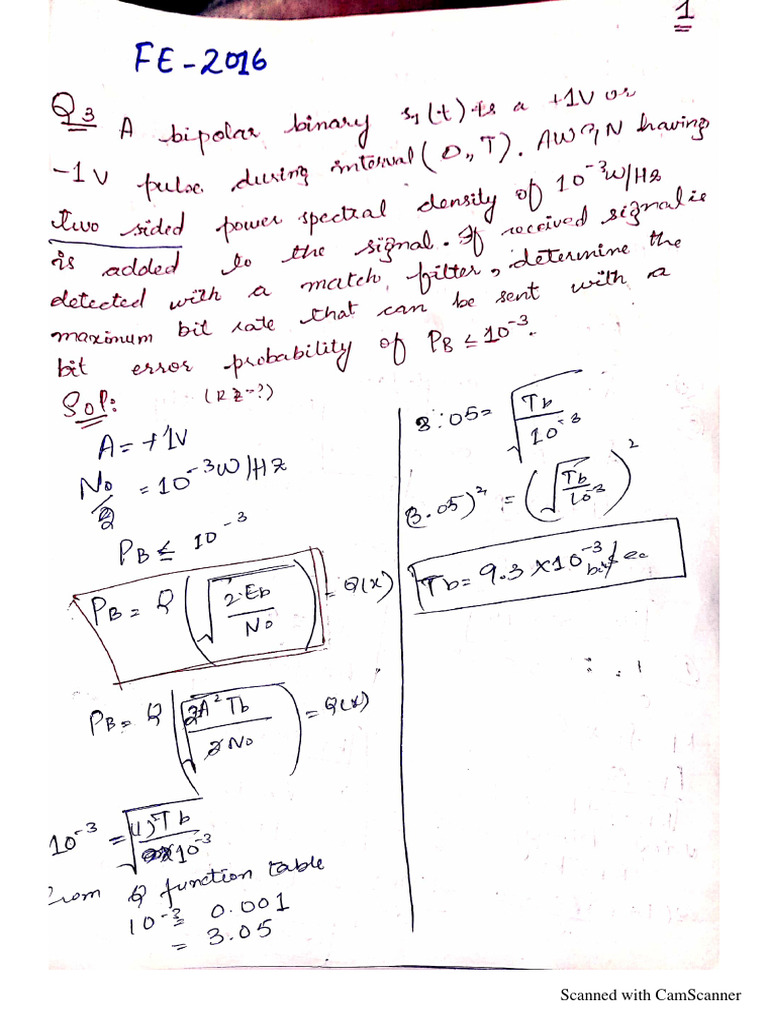 1
FE-2016
Q3 A bipolar binary s1(t) is a +1V or
-1V pulse during interval (0, T). AWGN having
two sided power spectral density of 10^-3 W/Hz
is added to the signal. If received signal is
detected with a match filter, determine the
maximum bit rate that can be sent with a
bit error probability of PB ≤ 10^-3.
Sol:
A = +1V
No/2 = 10^-3 W/Hz
PB ≤ 10^-3
PB = Q(√(2Eb/No)) = Q(x)
PB = Q(√(2A²Tb/2No)) = Q(x)
10^-3 = √((1)²Tb/10^-3)
From Q function table
10^-3 = 0.001
= 3.05
3.05 = √(Tb/10^-3)
(3.05)² = (√(Tb/10^-3))²
Tb = 9.3 × 10^-3 bit/sec
Scanned with CamScanner